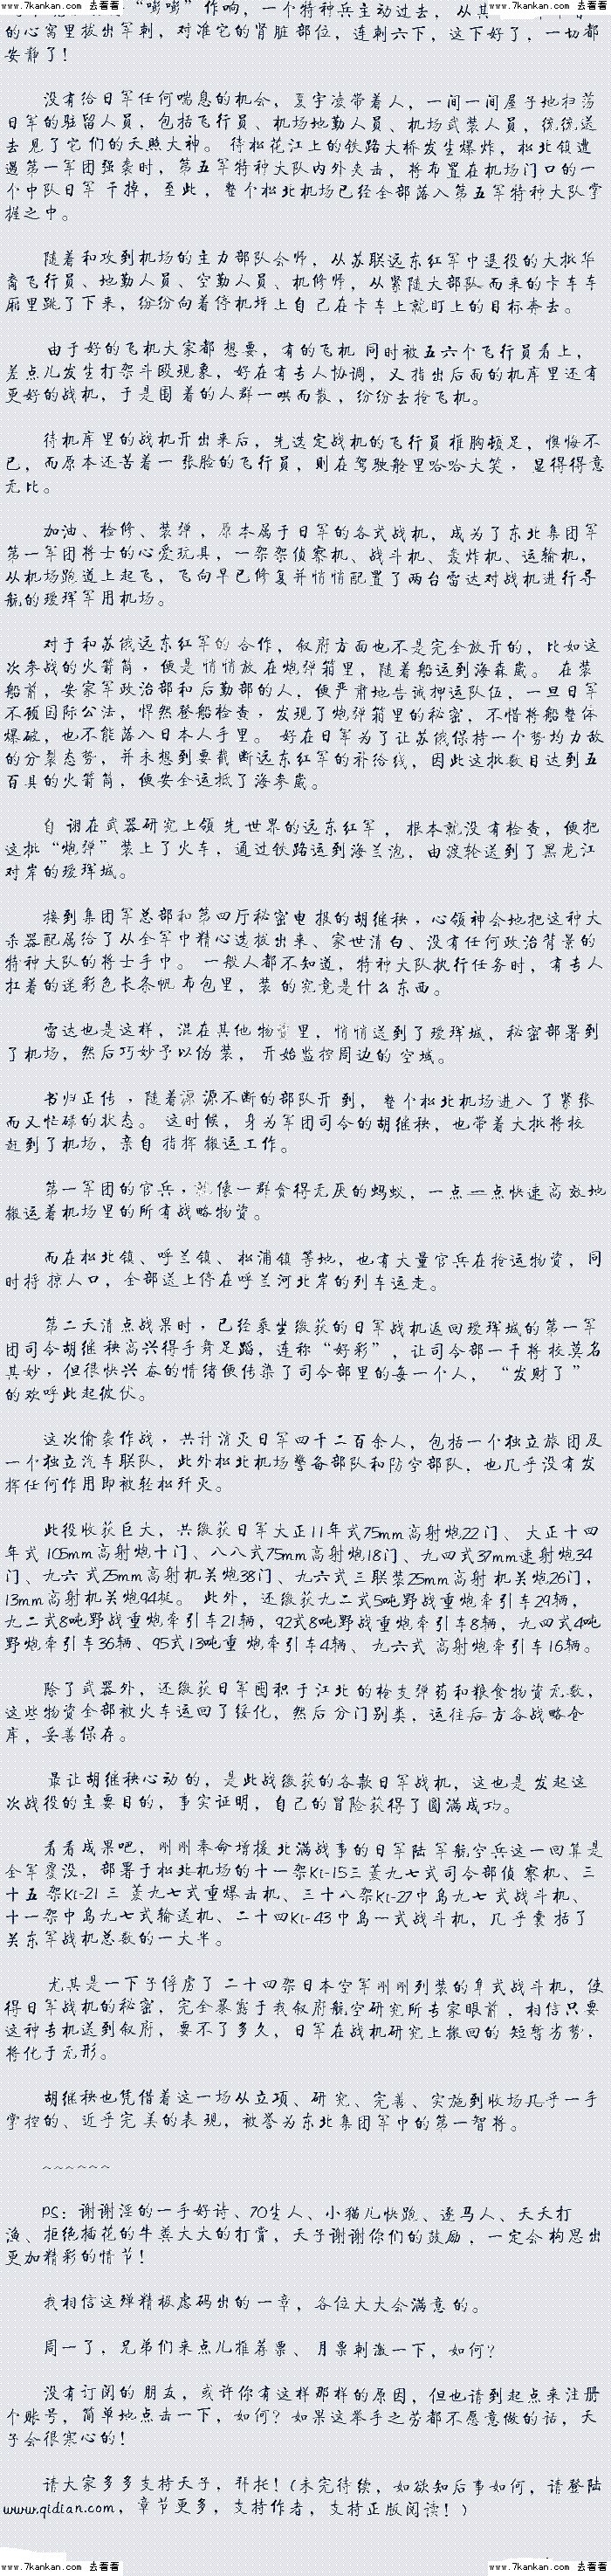 www.7kankan.com 去看看 www.7kankan.com 去看看
“嘭嘭”作响，一个特种兵主动过去，从其
的心窝里拔出军刺，对准它的肾脏部位，连刺六下，这下好了，一切都
安静了！
没有给日军任何喘息的机会，夏宇凌带着人，一间一间屋子地扫荡
日军的驻留人员，包括飞行员、机场地勤人员、机场武装人员，统统送
去见了它们的天照大神。待松花江上的铁路大桥发生爆炸，松北镇遭
遇第一军团强袭时，第五军特种大队内外夹击，将布置在机场门口的一
个中队日军干掉，至此，整个松北机场已经全部落入第五军特种大队掌
握之中。
随着和攻到机场的主力部队会师，从苏联远东红军中退役的大批华
裔飞行员、地勤人员、空勤人员、机修师，从紧随大部队而来的卡车车
厢里跳了下来，纷纷向着停机坪上自己在卡车上就盯上的目标奔去。
由于好的飞机大家都想要，有的飞机同时被五六个飞行员看上，
差点儿发生打架斗殴现象，好在有专人协调，又指出后面的机库里还有
更好的战机，于是围着的人群一哄而散，纷纷去抢飞机。
待机库里的战机开出来后，先选定战机的飞行员椎胸顿足，懊悔不
已，而原本还苦着一张脸的飞行员，则在驾驶舱里哈哈大笑，显得得意
无比。
加油、检修、装弹，原本属于日军的各式战机，成为了东北集团军
第一军团将士的心爱玩具，一架架侦察机、战斗机、轰炸机、运输机，
从机场跑道上起飞，飞向早已修复并悄悄配置了两台雷达对战机进行导
航的瑷珲军用机场。
对于和苏俄远东红军的合作，叙府方面也不是完全放开的，比如这
次参战的火箭筒，便是悄悄放在炮弹箱里，随着船运到海森崴。在装
船前，安家军政治部和后勤部的人，便严肃地告诫押运队伍，一旦日军
不顾国际公法，悍然登船检查，发现了炮弹箱里的秘密，不惜将船整体
爆破，也不能落入日本人手里。好在日军为了让苏俄保持一个势均力敌
的分裂态势，并未想到要截断远东红军的补给线，因此这批数目达到五
百具的火箭筒，便安全运抵了海参崴。
自诩在武器研究上领先世界的远东红军，根本就没有检查，便把
这批“炮弹”装上了火车，通过铁路运到海兰泡，由渡轮送到了黑龙江
对岸的瑷珲城。
接到集团军总部和第四厅秘密电报的胡继秧，心领神会地把这种大
杀器配属给了从全军中精心选拔出来、家世清白、没有任何政治背景的
特种大队的将士手中。一般人都不知道，特种大队执行任务时，有专人
扛着的迷彩色长条帆布包里，装的究竟是什么东西。
雷达也是这样，混在其他物资里，悄悄送到了瑷珲城，秘密部署到
了机场，然后巧妙予以伪装，开始监控周边的空域。
书归正传，随着源源不断的部队开到，整个松北机场进入了紧张
而又忙碌的状态。这时候，身为军团司令的胡继秧，也带着大批将校
赶到了机场，亲自指挥搬运工作。
第一军团的官兵，就像一群贪得无厌的蚂蚁，一点一点快速高效地
搬运着机场里的所有战略物资。
而在松北镇、呼兰镇、松浦镇等地，也有大量官兵在抢运物资，同
时捋掠人口，全部送上停在呼兰河北岸的列车运走。
第二天清点战果时，已经乘坐缴获的日军战机返回瑷珲城的第一军
团司令胡继秧高兴得手舞足蹈，连称“好彩”，让司令部一干将校莫名
其妙，但很快兴奋的情绪便传染了司令部里的每一个人，“发财了”
的欢呼此起彼伏。
这次偷袭作战，共计消灭日军四千二百余人，包括一个独立旅团及
一个独立汽车联队，此外松北机场警备部队和防空部队，也几乎没有发
挥任何作用即被轻松歼灭。
此役收获巨大，共缴获日军大正11年式75mm高射炮22门、大正十四
年式105mm高射炮十门、八八式75mm高射炮18门、九四式37mm速射炮34
门、九六式25mm高射机关炮38门、九六式三联装25mm高射机关炮26门，
13mm高射机关炮94挺。此外，还缴获九二式5吨野战重炮牵引车29辆，
九二式8吨野战重炮牵引车21辆，92式8吨野战重炮牵引车8辆，九四式4吨
野炮牵引车36辆、95式13吨重炮牵引车4辆、九六式高射炮牵引车16辆。
除了武器外，还缴获日军囤积于江北的枪支弹药和粮食物资无数，
这些物资全部被火车运回了绥化，然后分门别类，运往后方各战略仓
库，妥善保存。
最让胡继秧心动的，是此战缴获的各款日军战机，这也是发起这
次战役的主要目的，事实证明，自己的冒险获得了圆满成功。
看看成果吧，刚刚奉命增援北满战事的日军陆军航空兵这一回算是
全军覆没，部署于松北机场的十一架Ki-15三菱九七式司令部侦察机、三
十五架Ki-21三菱九七式重爆击机、三十八架Ki-27中岛九七式战斗机、
十一架中岛九七式输送机、二十四Ki-43中岛一式战斗机，几乎囊括了
关东军战机总数的一大半。
尤其是一下子俘虏了二十四架日本空军刚刚列装的隼式战斗机，使
得日军战机的秘密，完全暴露于我叙府航空研究所专家眼前，相信只要
这种专机送到叙府，要不了多久，日军在战机研究上撤回的短暂劣势，
将化于无形。
胡继秧也凭借着这一场从立项、研究、完善、实施到收场几乎一手
掌控的、近乎完美的表现，被誉为东北集团军中的第一智将。
~~~~~~
PS：谢谢淫的一手好诗、70生人、小猫儿快跑、逐马人、天天打
渔、拒绝插花的牛粪大大的打赏，天子谢谢你们的鼓励，一定会构思出
更加精彩的情节！
我相信这殚精极虑码出的一章，各位大大会满意的。
周一了，兄弟们来点儿推荐票、月票刺激一下，如何？
没有订阅的朋友，或许你有这样那样的原因，但也请到起点来注册
个账号，简单地点击一下，如何？如果这举手之劳都不愿意做的话，天
子会很寒心的！
请大家多多支持天子，拜托！（未完待续，如欲知后事如何，请登陆
www.qidian.com，章节更多，支持作者，支持正版阅读！）
www.7kankan.com 去看看 www.7kankan.com 去看看